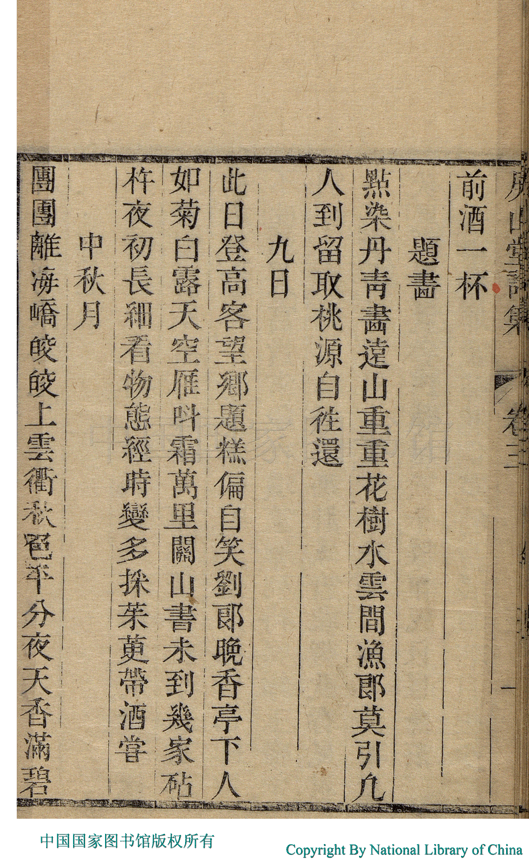 山堂詩集 卷三 一
前酒一杯
題畵
點染丹青畵遠山重重花樹水雲間漁郎莫引凢
人到留取桃源自徃還
九日
此日登高客望鄉題糕偏自笑劉郎晚香亭下人
如菊白露天空雁呌霜萬里關山書未到幾家砧
杵夜初長細看物態經時變多採茱萸帶酒嘗
中秋月
團團離海嶠皎皎上雲衢秋色平分夜天香滿碧
中国国家图书馆版权所有
Copyright By National Library of China